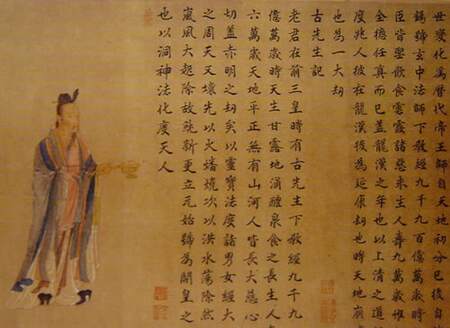 世變化為曆代帝王師自天地初分已後自
錫號玄中法師下教經九千九百億萬歲時
臣皆學飲食雲霞諸惡未生人壽九萬歲惟
金德任真而已蓋龍漢之年也以上清之道
度兆人彼在龍漢後為延康劫也時天地崩
也為一大劫
古先生記
老君在前三皇時有古先生下教經九千九
億萬歲時天生甘露地涌醴泉食之長生人
六萬歲天地平正無有山河人皆長大慈心
切蓋赤明之劫矣以靈寶法度諸男女經大
之周天又壞先以火燔燒次以洪水蕩除然
嵐風大起除故就新更立元始號為開皇之
也以洞神法化度天人